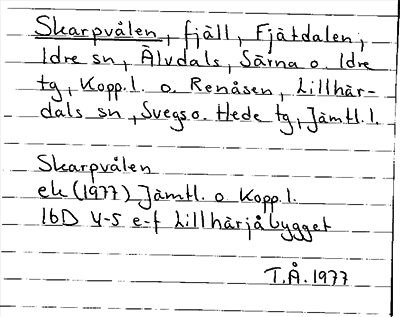 Skarpvålen, fjäll, Fjätdalen,
Idre sn, Älvdals, Särna o. Idre
tg, Kopp.l. o. Renåsen, Lillhär-
dals sn, Svegs o. Hede tg, Jämtl.l.
Skarpvålen
ek (1977) Jämtl. o Kopp.l.
16D 4-5 e-f Lillhärjåbygget
T.Å. 1977